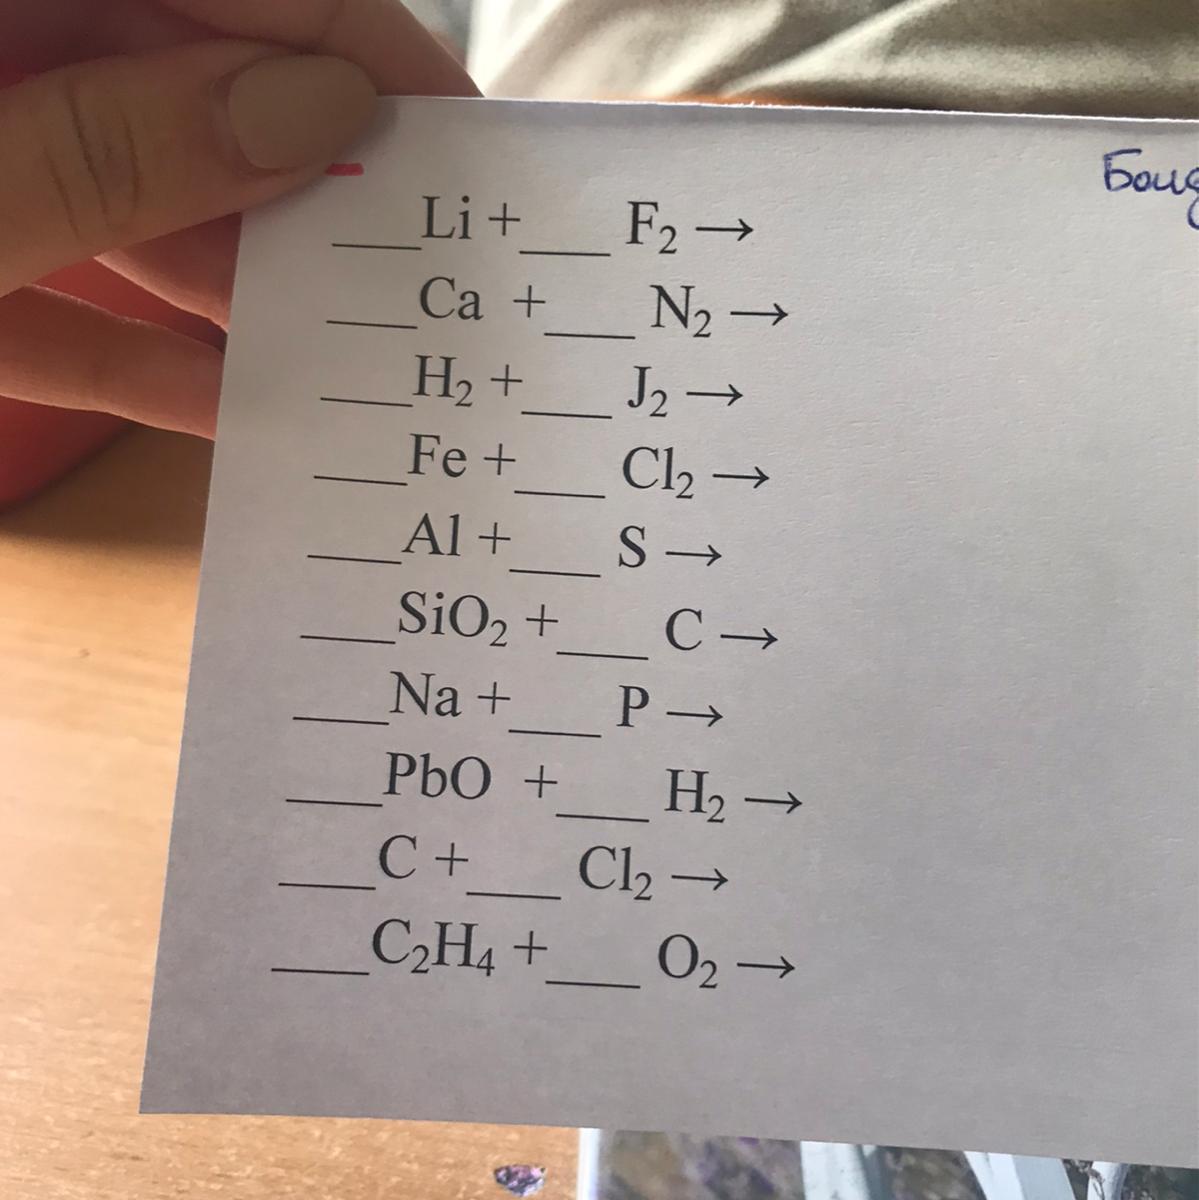 ___Li + ___ F₂ →
___Ca + ___ N₂ →
___H₂ + ___ J₂ →
___Fe + ___ Cl₂ →
___Al + ___ S →
___SiO₂ + ___ C →
___Na + ___ P →
___PbO + ___ H₂ →
___C + ___ Cl₂ →
___C₂H₄ + ___ O₂ →